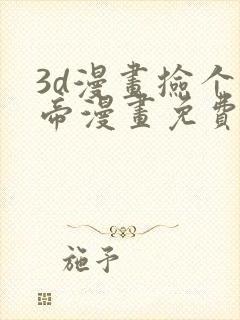 3d漫畫撿个
帝漫畫免費
施予